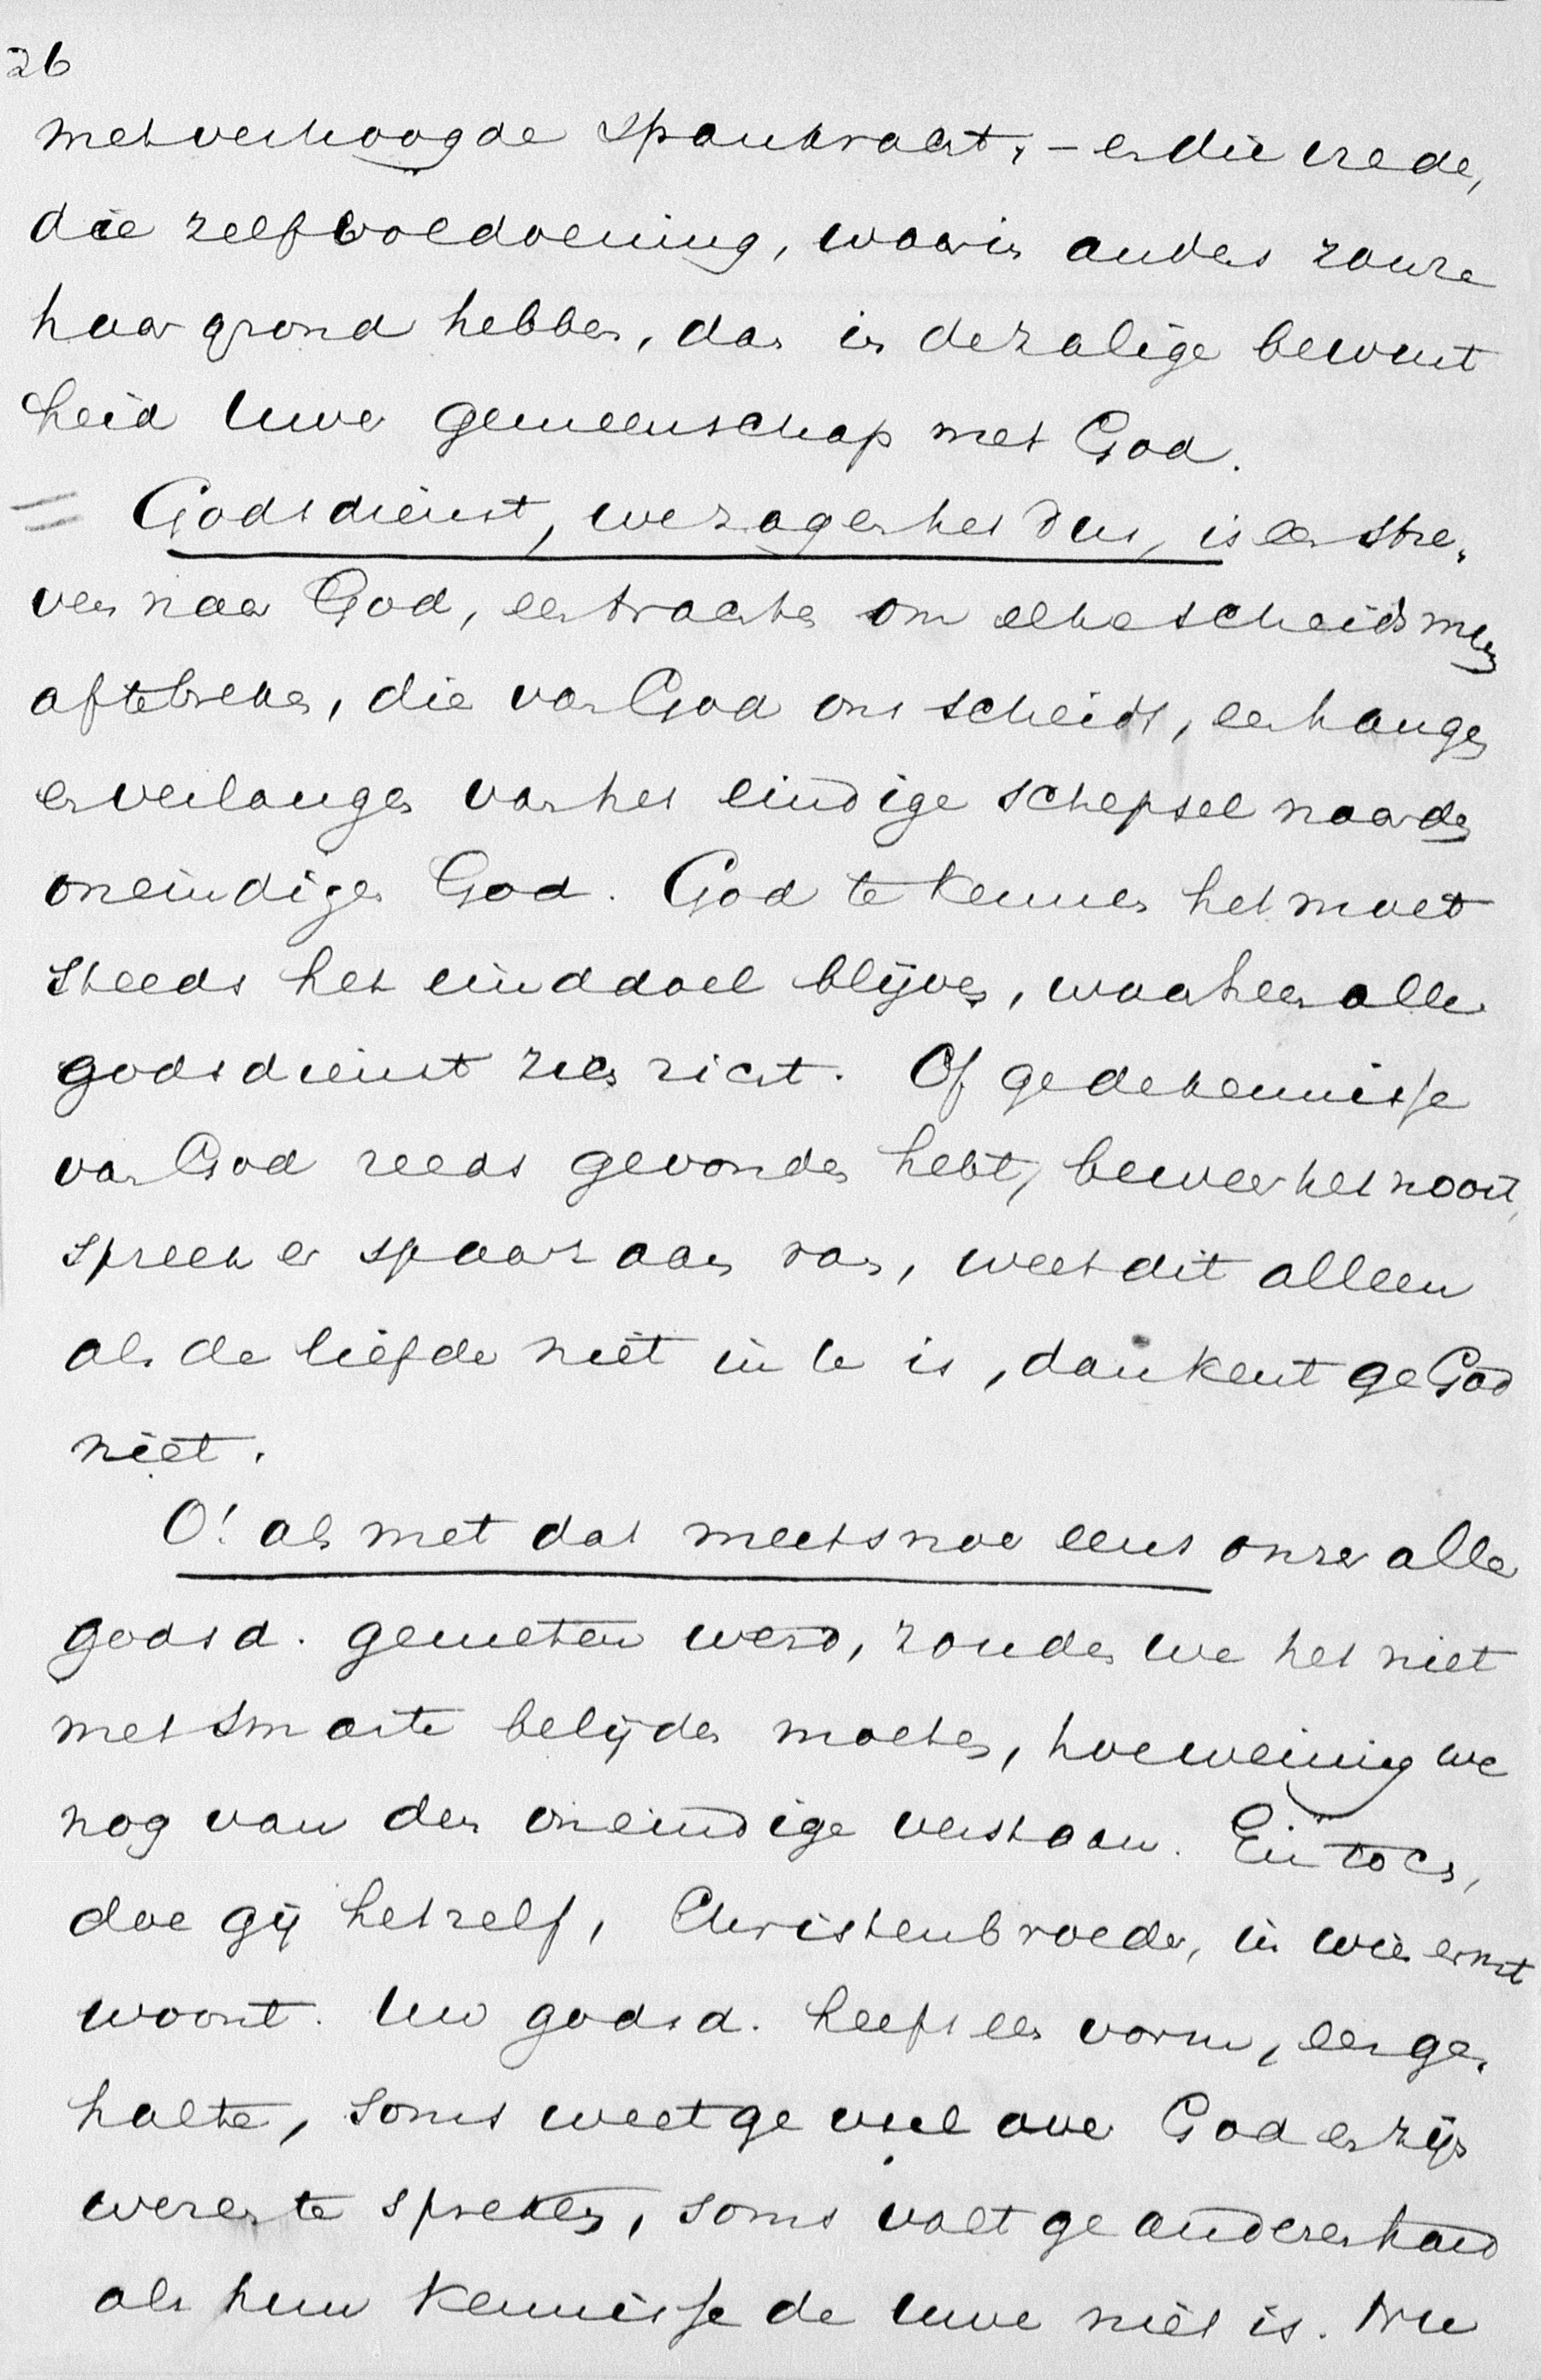 26
met verhoogde spankracht, – en die vrede,
die zelfvoldoening, waarin anders zou ze
haar grond hebben, dan in de zalige bewust
heid Uwer gemeenschap met God.
= Godsdienst, we zagen het dus, is een stre-
ven naar God, een trachten om elke scheidsmuur
aftebreken, die van God ons scheidt, een hangen
en verlangen van het eindige schepsel naar den
oneindigen God. God te kennen het moet
steeds het einddoel blijven, waarheen alle
godsdienst zich richt. Of ge de kennisse
van God reeds gevonden hebt, beweer het nooit,
spreek er spaarzaam van, weet dit alleen
als de liefde niet in U is, dan kent ge God
niet.
O! als met dat meetsnoer eens onzer aller
godsd. gemeten werd, zouden we het niet
met smarte belijden moeten, hoe weinig we
nog van den oneindige verstaan. En toch,
doe gij het zelf, Christenbroeder, in wien ernst
woont. Uw godsd. heeft een vorm, een ge-
halte, soms weet ge veel over God en zijn
wezen te spreken, soms valt ge anderen hard
als hun kennisse de Uwe niet is. Nu